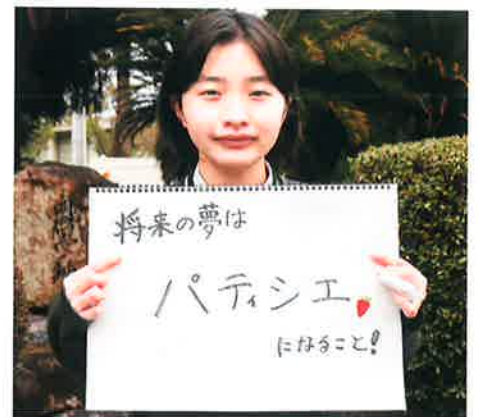 将来の夢は
パティシエ
になること!